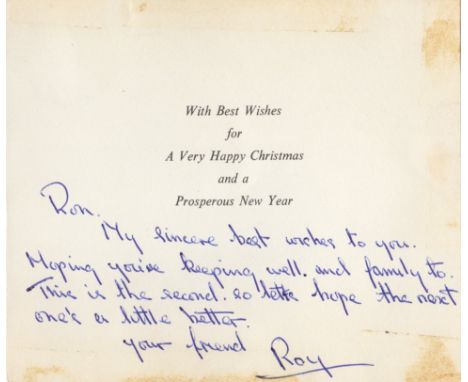 With Best Wishes
for
A Very Happy Christmas
and a
Prosperous New Year
Ron.
My sincere best wishes to you.
Hoping you're keeping well. and family to.
This is the second. so let's hope the next
one's a little better.
your friend Roy